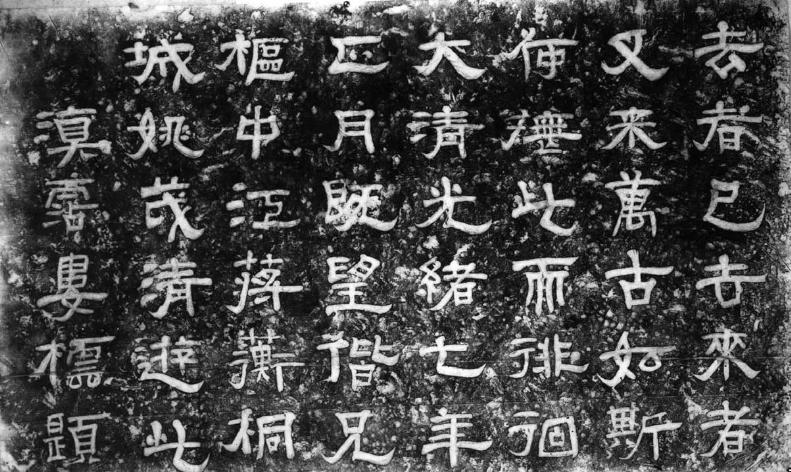 去者已去來者
又来萬古如斯
何此而徘徊
大清光緒七年
正月既望偕兄
樞中江蔣蘅桐
城姚茂清遊此
滇婁橒題